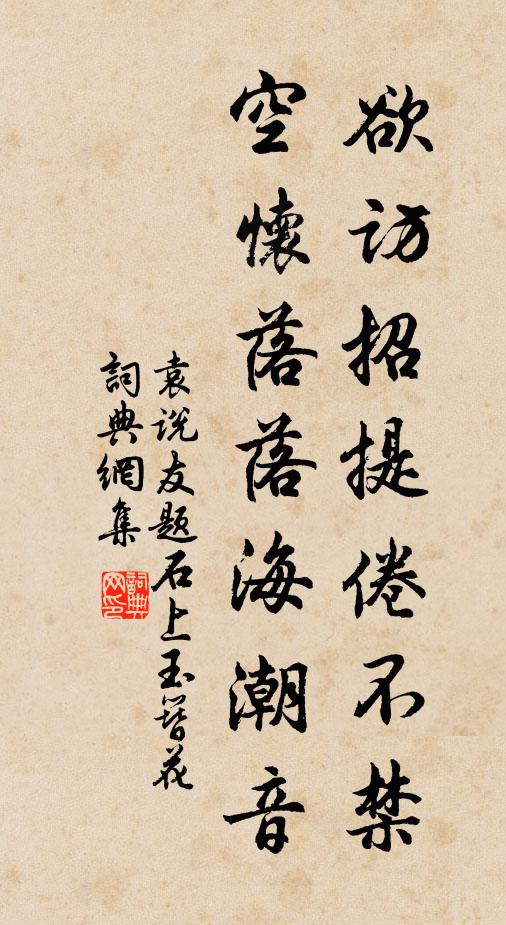 欲访招提倦不禁
空懷落落海潮音
袁说友题石上玉簪花
詞典網集
詞典
网印